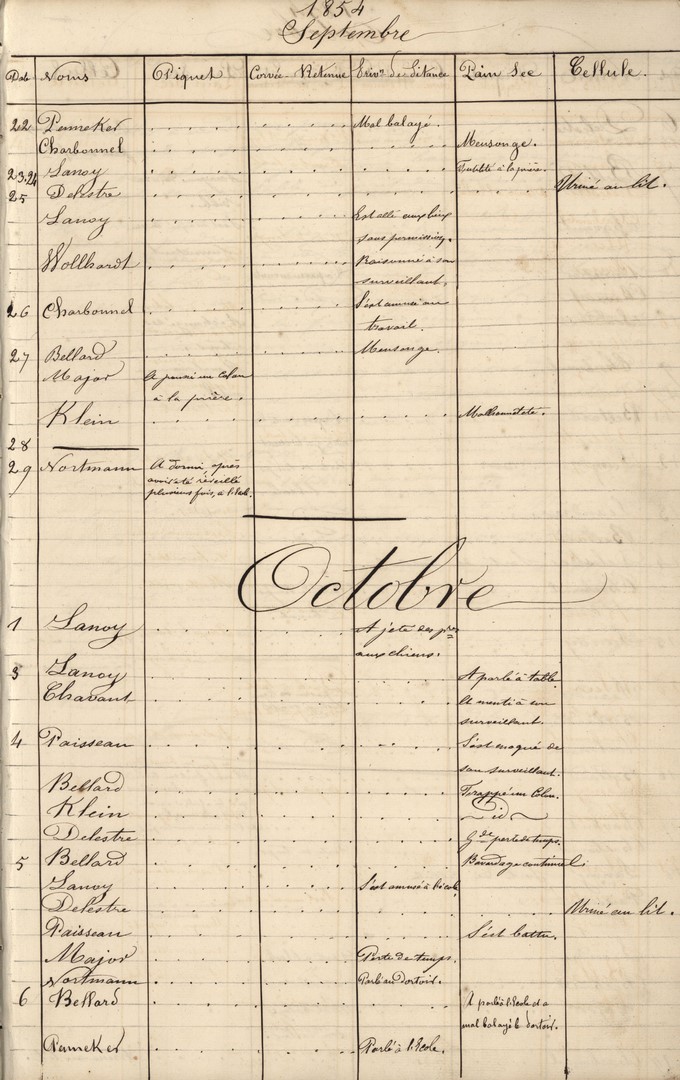 1854
Septembre
Date Noms Piquet Corvée - Retenue Priv.n de Séance Pain Sec Cellule.
22 Pemeker Mal balayé.
Charbonnel Mensonge.
23.24 Lanoy à la prière.
25 Delestre Uriné au lit.
Lanoy Est allé aux lieux
sans permission.
Wollhardt Raisonné à son
surveillant.
26 Charbonnel S'est amusé au
travail.
27 Bellard Mensonge.
Major A un Colon
à la prière.
Klein Malhonnêteté.
28
29 Nortmann A dormi, après
avoir été réveillé
plusieurs fois, à l'école.
Octobre
1 Lanoy A jeté des p.res
aux chiens.
3 Lanoy A parlé à table
Chavant A menti à un
surveillant.
4 Paisseau S'est moqué de
son surveillant.
Bellard Frappé un Colon.
Klein id
Delestre G.de perte de temps.
5 Bellard Bavardage continuel.
Lanoy S'est amusé à l'école
Delestre Uriné au lit.
Paisseau S'est battu.
Major Perte de temps.
Nortmann Parlé au dortoir.
6 Bellard A parlé à l'école et a
mal balayé le dortoir.
Pemeker Parlé à l'école.